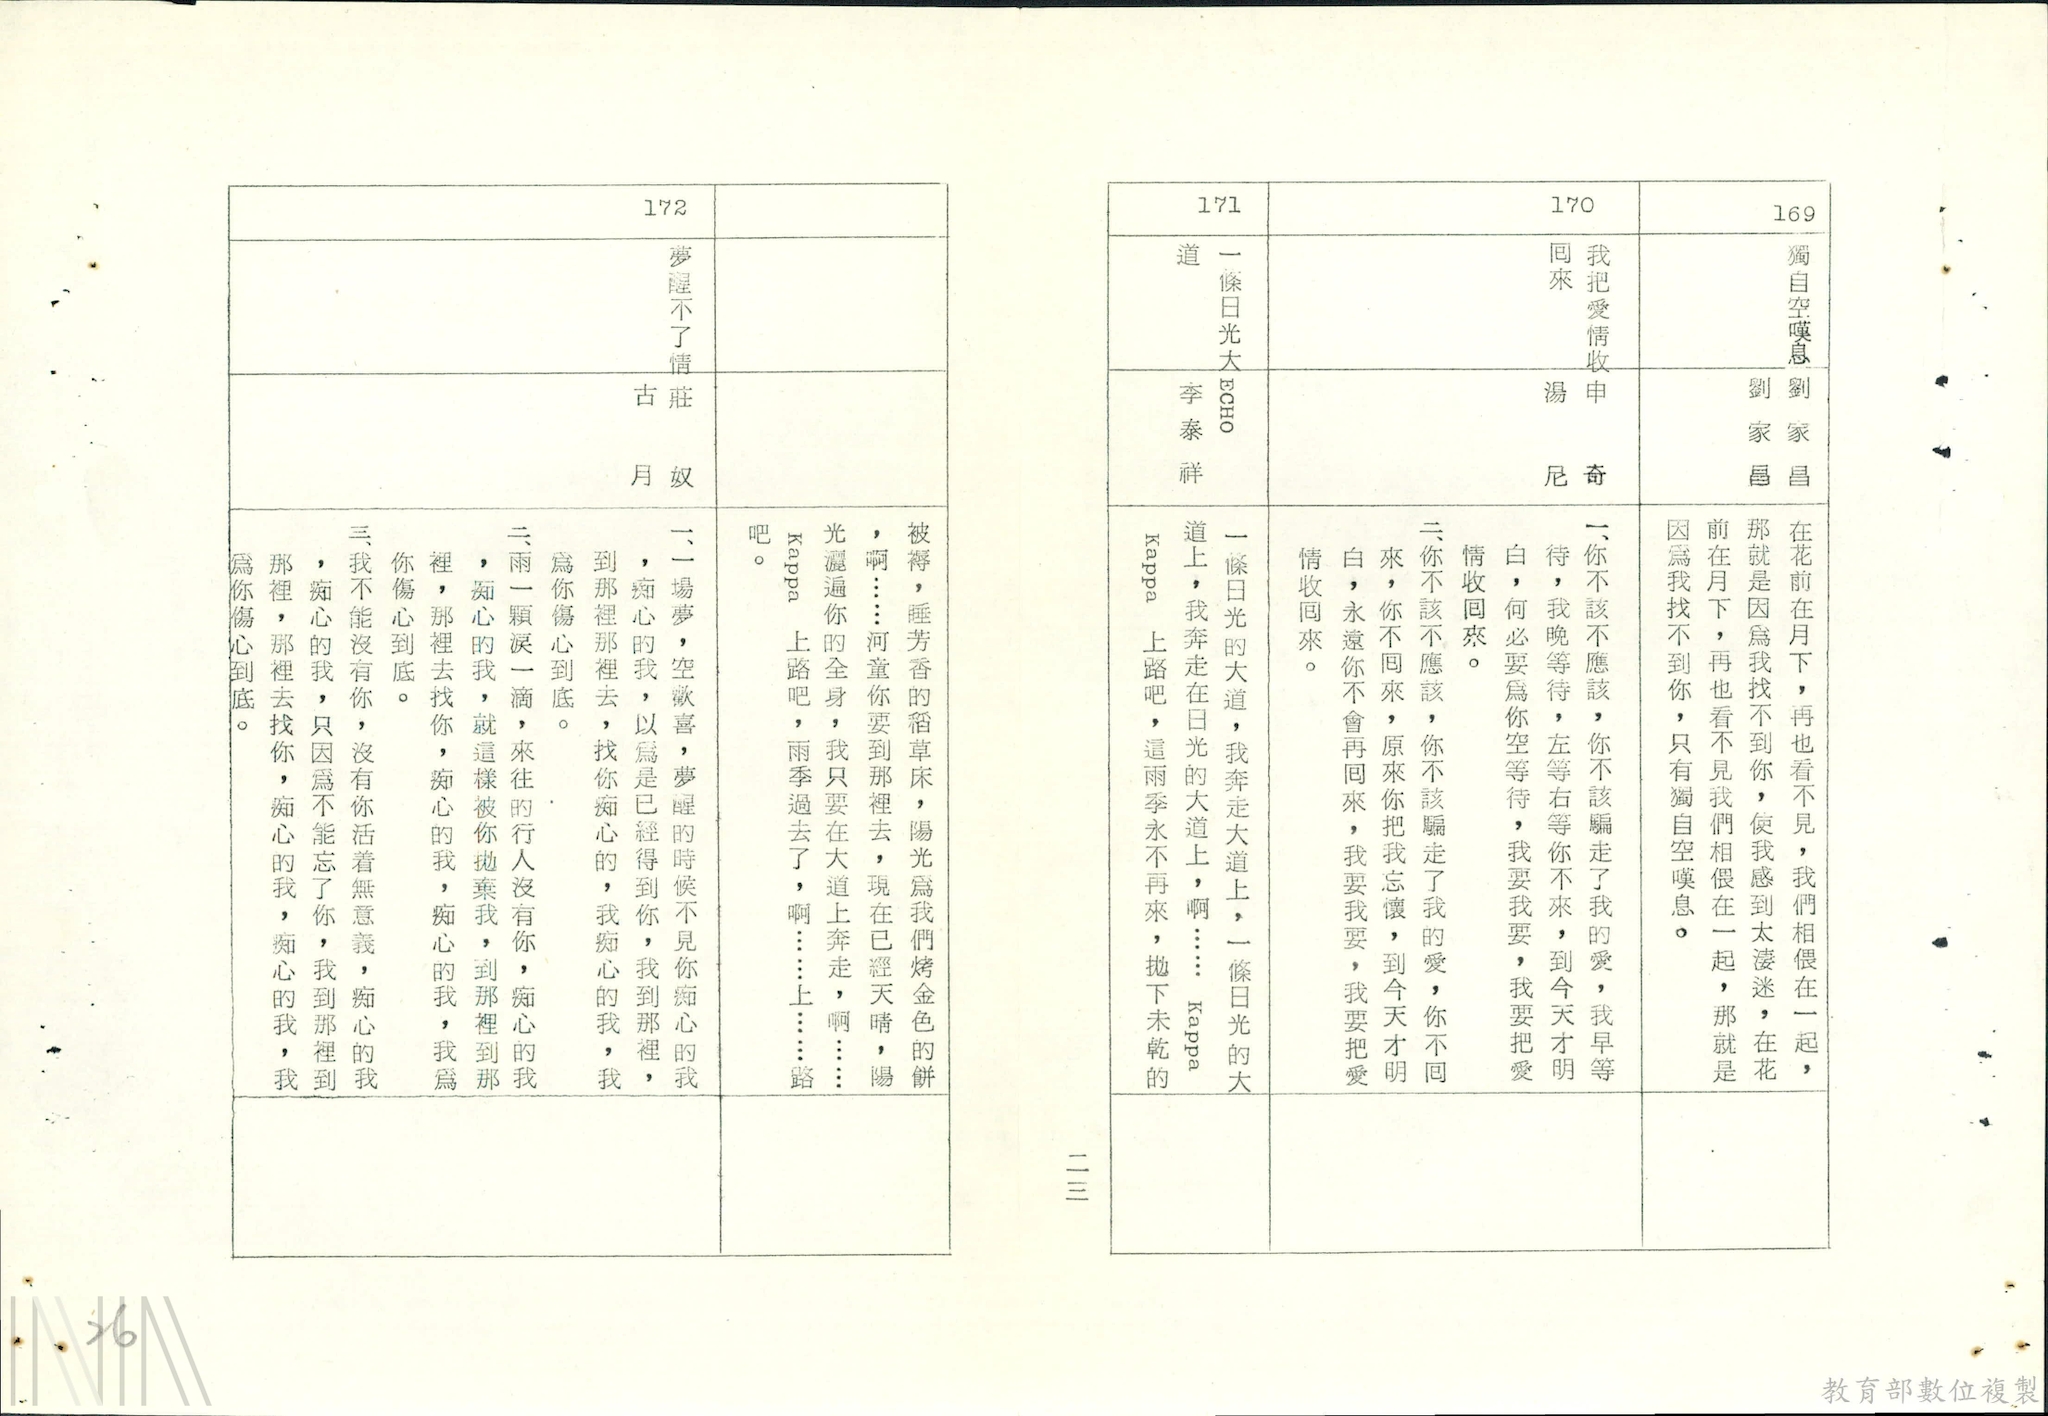 169
獨自空嘆息
劉家昌
劉家昌
在花前在月下，再也看不見，我們相偎在一起，
那就是因爲我找不到你，使我感到太淒迷，在花
前在月下，再也看不見我們相偎在一起，那就是
因爲我找不到你，只有獨自空嘆息。
170
我把愛情收
囘來
申奇
湯尼
一、你不該不應該，你不該騙走了我的愛，我早等
待，我晚等待，左等右等你不來，到今天才明
白，何必要爲你空等待，我要我要，我要把愛
情收囘來。
二、你不該不應該，你不該騙走了我的愛，你不囘
來，你不囘來，原來你把我忘懷，到今天才明
白，永遠你不會再囘來，我要我要，我要把愛
情收囘來。
171
一條日光大
道
ECHO
李泰祥
一條日光的大道，我奔走大道上，一條日光的大
道上，我奔走在日光的大道上，啊⋯⋯ Kappa
Kappa 上路吧，這雨季永不再來，拋下未乾的
二三
被褥，睡芳香的稻草床，陽光爲我們烤金色的餅
，啊⋯⋯河童你要到那裡去，現在已經天晴，陽
光灑遍你的全身，我只要在大道上奔走，啊⋯⋯
Kappa 上路吧，雨季過去了，啊⋯⋯上⋯⋯路
吧。
172
夢醒不了情
莊奴
古月
一、一場夢，空歡喜，夢醒的時候不見你痴心的我
，痴心的我，以爲是已經得到你，我到那裡，
到那裡那裡去，找你痴心的，我痴心的我，我
爲你傷心到底。
二、雨一顆淚一滴，來往的行人沒有你，痴心的我
，痴心的我，就這樣被你拋棄我，到那裡到那
裡，那裡去找你，痴心的我，痴心的我，我爲
你傷心到底。
三、我不能沒有你，沒有你活着無意義，痴心的我
，痴心的我，只因爲不能忘了你，我到那裡到
那裡，那裡去找你，痴心的我，痴心的我，我
爲你傷心到底。
26
教育部數位複製